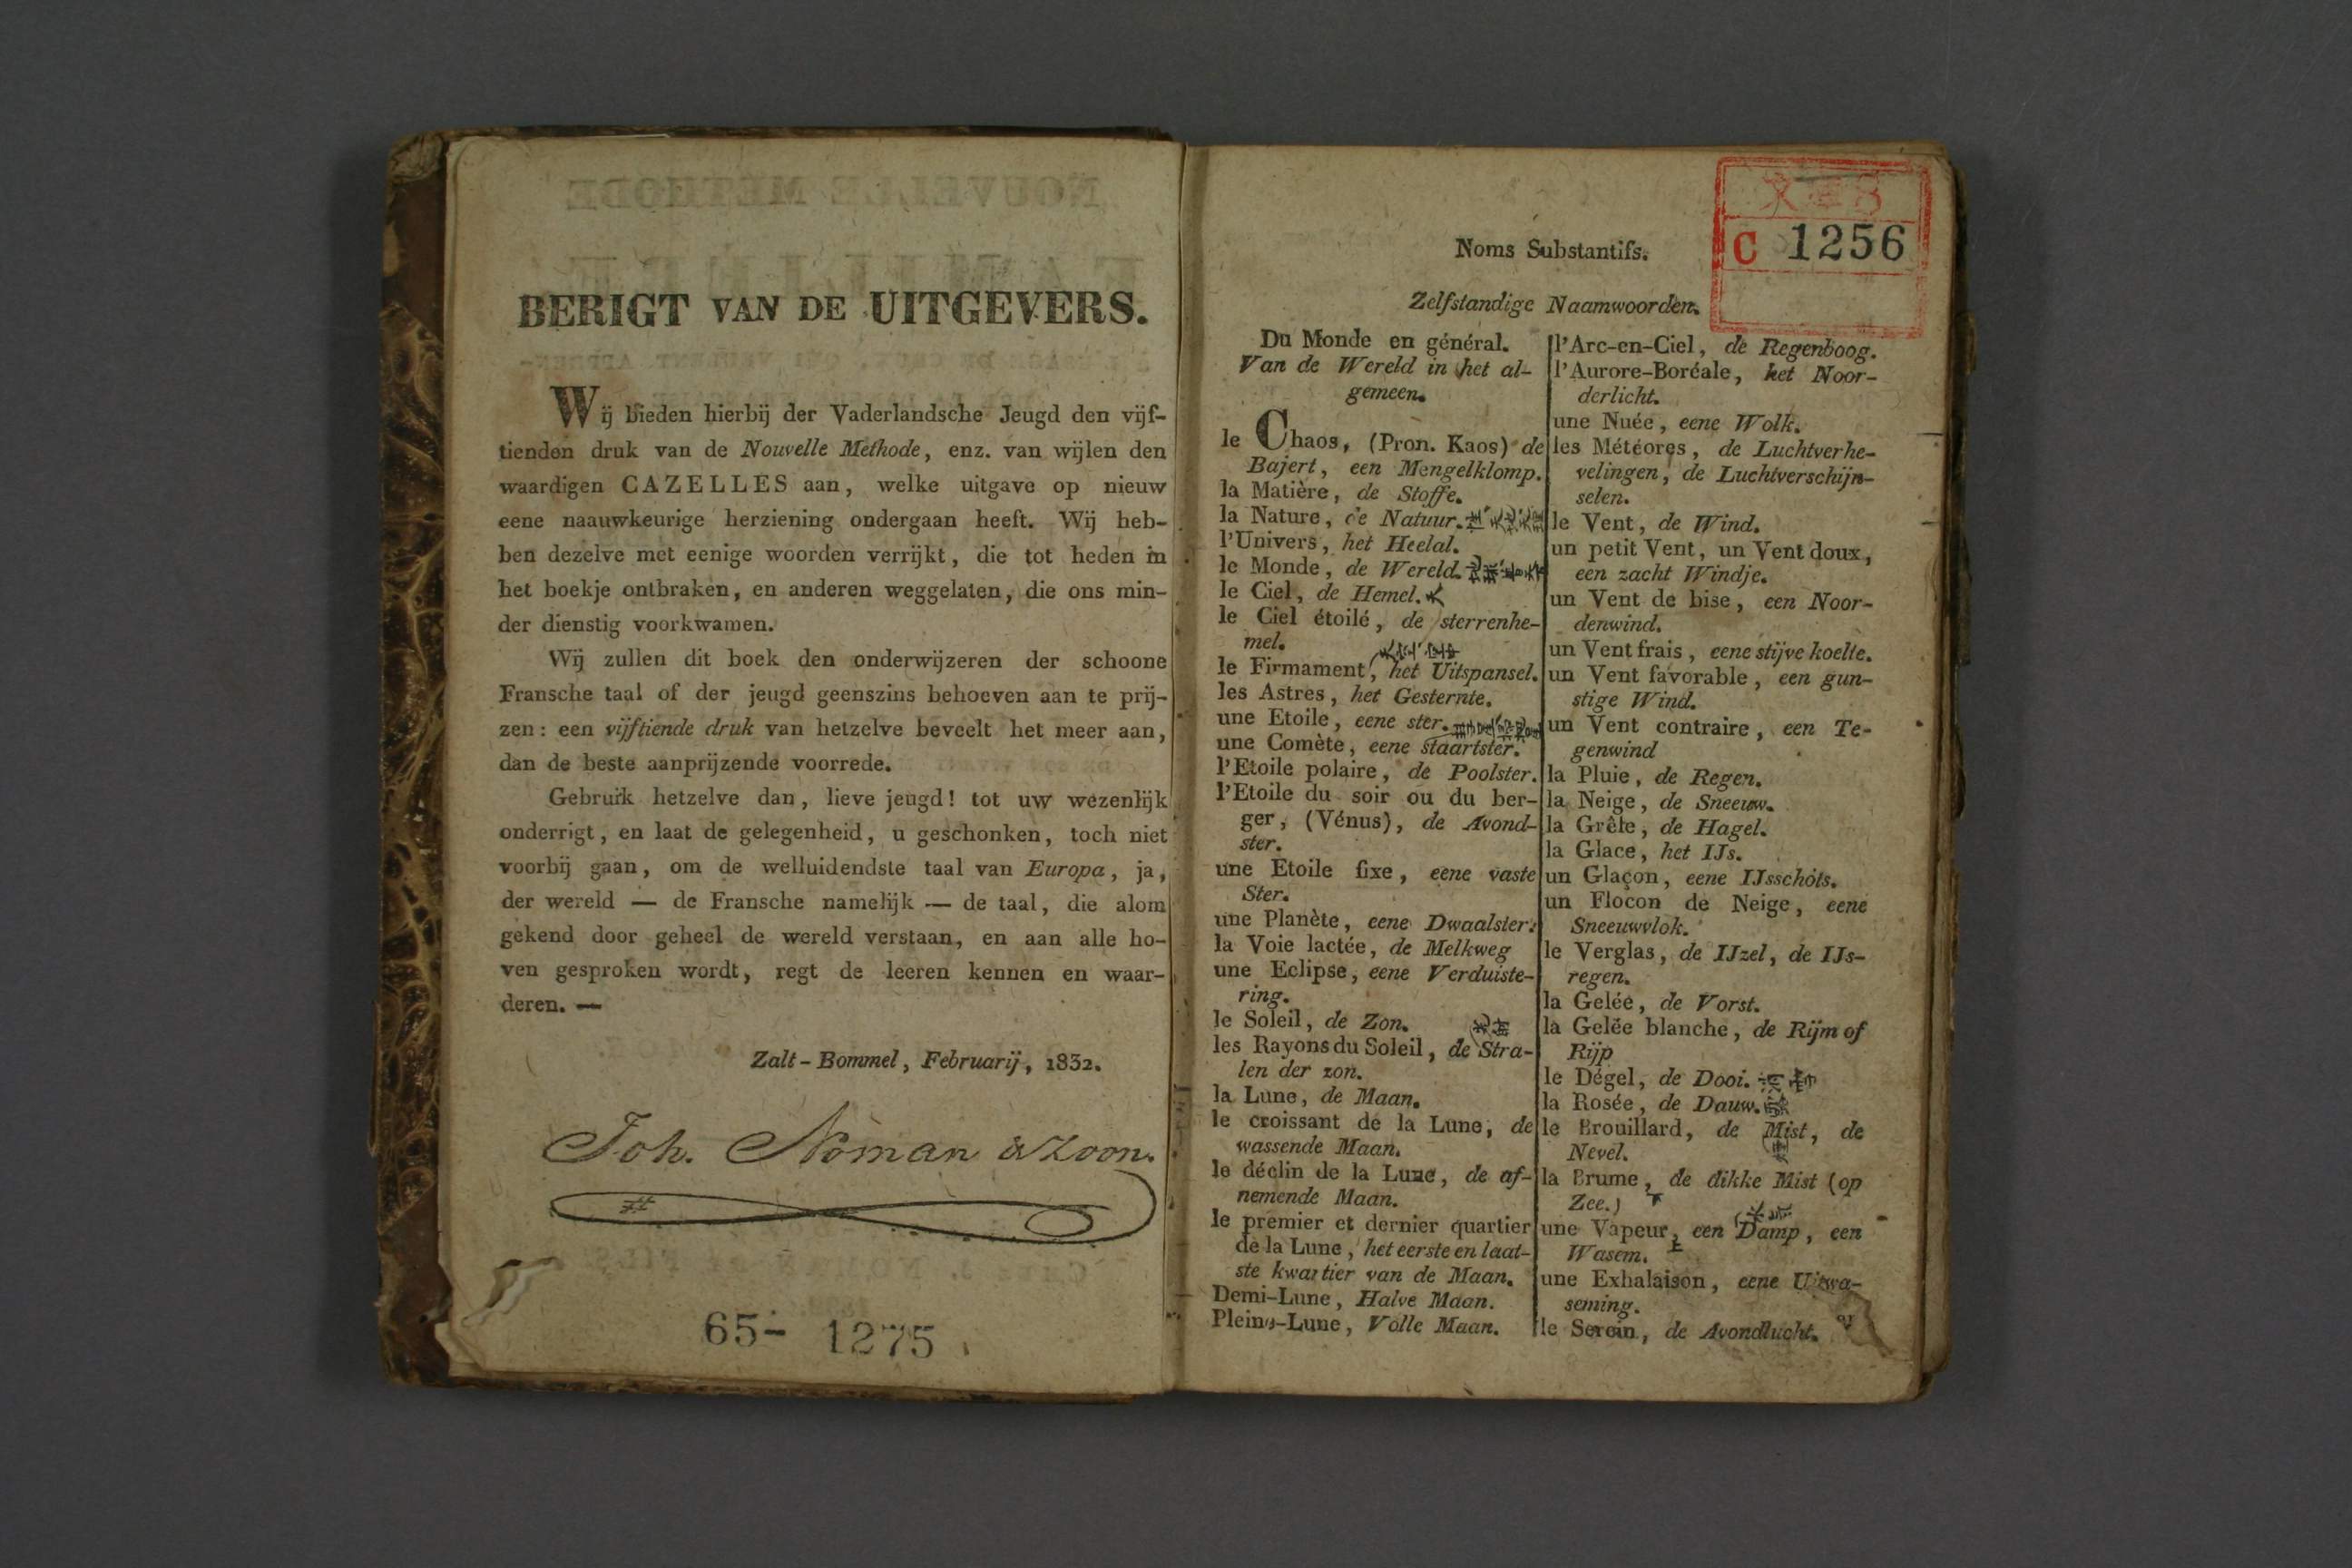 BERIGT VAN DE UITGEVERS.
Wij bieden hierbij der Vaderlandsche Jeugd den vijf-
tienden druk van de Nouvelle Methode, enz. van wijlen den
waardigen CAZELLES aan, welke uitgave op nieuw
eene naauwkeurige herziening ondergaan heeft. Wij heb-
ben dezelve met eenige woorden verrijkt, die tot heden in
het boekje ontbraken, en anderen weggelaten, die ons min-
der dienstig voorkwamen.
Wij zullen dit boek den onderwijzeren der schoone
Fransche taal of der jeugd geenszins behoeven aan te prij-
zen: een vijftiende druk van hetzelve beveelt het meer aan,
dan de beste aanprijzende voorrede.
Gebruik hetzelve dan, lieve jeugd! tot uw wezenlijk
onderrigt, en laat de gelegenheid, u geschonken, toch niet
voorbij gaan, om de welluidendste taal van Europa, ja,
der wereld — de Fransche namelijk — de taal, die alom
gekend door geheel de wereld verstaan, en aan alle ho-
ven gesproken wordt, regt de leeren kennen en waar-
deren. —
Zalt-Bommel, Februarij, 1832.
Joh. Noman & Zoon.
65- 1275
文庫8
C 1256
Noms Substantifs.
Zelfstandige Naamwoorden.
Du Monde en général.
Van de Wereld in het al-
gemeen.
le Chaos, (Pron. Kaos) de
Bajert, een Mengelklomp.
la Matière, de Stoffe.
la Nature, de Natuur.
l'Univers, het Heelal.
le Monde, de Wereld.
le Ciel, de Hemel. 天
le Ciel étoilé, de sterrenhe-
mel.
le Firmament, het Uitspansel.
les Astres, het Gesternte.
une Etoile, eene ster.
une Comète, eene staartster.
l'Etoile polaire, de Poolster.
l'Etoile du soir ou du ber-
ger, (Vénus), de Avond-
ster.
une Etoile fixe, eene vaste
Ster.
une Planète, eene Dwaalster.
la Voie lactée, de Melkweg
une Eclipse, eene Verduiste-
ring.
le Soleil, de Zon.
les Rayons du Soleil, de Stra-
len der zon.
la Lune, de Maan.
le croissant de la Lune, de
wassende Maan.
le déclin de la Lune, de af-
nemende Maan.
le premier et dernier quartier
de la Lune, het eerste en laat-
ste kwartier van de Maan.
Demi-Lune, Halve Maan.
Pleine-Lune, Volle Maan.
l'Arc-en-Ciel, de Regenboog.
l'Aurore-Boréale, het Noor-
derlicht.
une Nuée, eene Wolk.
les Météores, de Luchtverhe-
velingen, de Luchtverschijn-
selen.
le Vent, de Wind.
un petit Vent, un Vent doux,
een zacht Windje.
un Vent de bise, een Noor-
denwind.
un Vent frais, eene stijve koelte.
un Vent favorable, een gun-
stige Wind.
un Vent contraire, een Te-
genwind
la Pluie, de Regen.
la Neige, de Sneeuw.
la Grêle, de Hagel.
la Glace, het IJs.
un Glaçon, eene IJsschots.
un Flocon de Neige, eene
Sneeuwvlok.
le Verglas, de IJzel, de IJs-
regen.
la Gelée, de Vorst.
la Gelée blanche, de Rijm of
Rijp
le Dégel, de Dooi.
la Rosée, de Dauw.
le Brouillard, de Mist, de
Nevel.
la Brume, de dikke Mist (op
Zee.)
une Vapeur, een Damp, een
Wasem.
une Exhalaison, eene Uitwa-
seming.
le Serein, de Avondlucht.